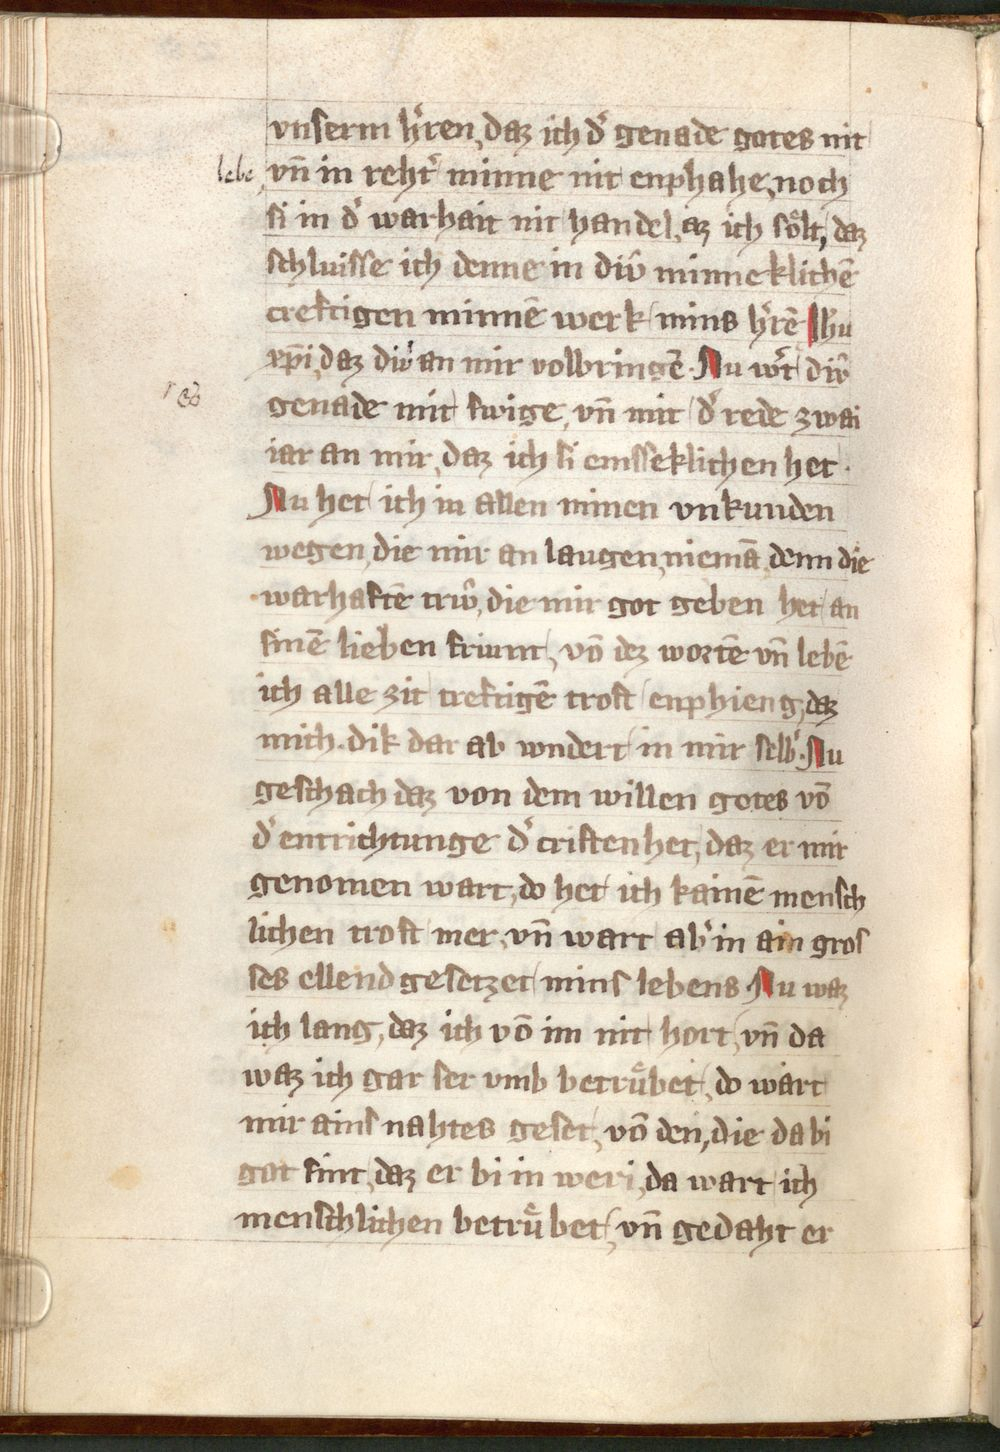 vnserm hʼren, daz ich dʼ genade gotes nit
lebe vn̄ in rehtʼ minne nit enphahe, noch
si in dʼ warhait nit handel, az ich soͤlt, daz
schluisse ich denne in diu᷑ minneklichē
creftigen minnē werk mins hʼrē Jhu
xp̄i, daz diu᷑ an mir volbringē. Nu wʼt diu᷑
genade mit swige, vn̄ mit dʼ rede zwai
iar an mir, daz ich si emsseklichen het.
Nu het ich in allen minen vnkunden
wegen, die mir an laugen, niemā denn die
warhaftē triw᷑, die mir got geben het an
sinē lieben friunt, vō dez wortē vn̄ lebē
ich alle zit creftigē trost enphieng, daz
mich dik dar ab wndert in mir selbʼ. Nu
geschach daz von dem willen gotes vō
dʼ entrichtunge dʼ cristenhet, daz er mir
genomen wart, do het ich kainē mensch
lichen trost mer, vn̄ wart abʼ in ain gros
ses ellend gesetzet mins lebens Nu waz
ich lang, daz ich vō im nit hort, vn̄ da
waz ich gar ser vmb betruͤbet, do wart
mir ains nahtes geset, vō den, die da bi
got sint, daz er bi in weri, da wart ich
menschlichen betruͤbet, vn̄ gedaht er